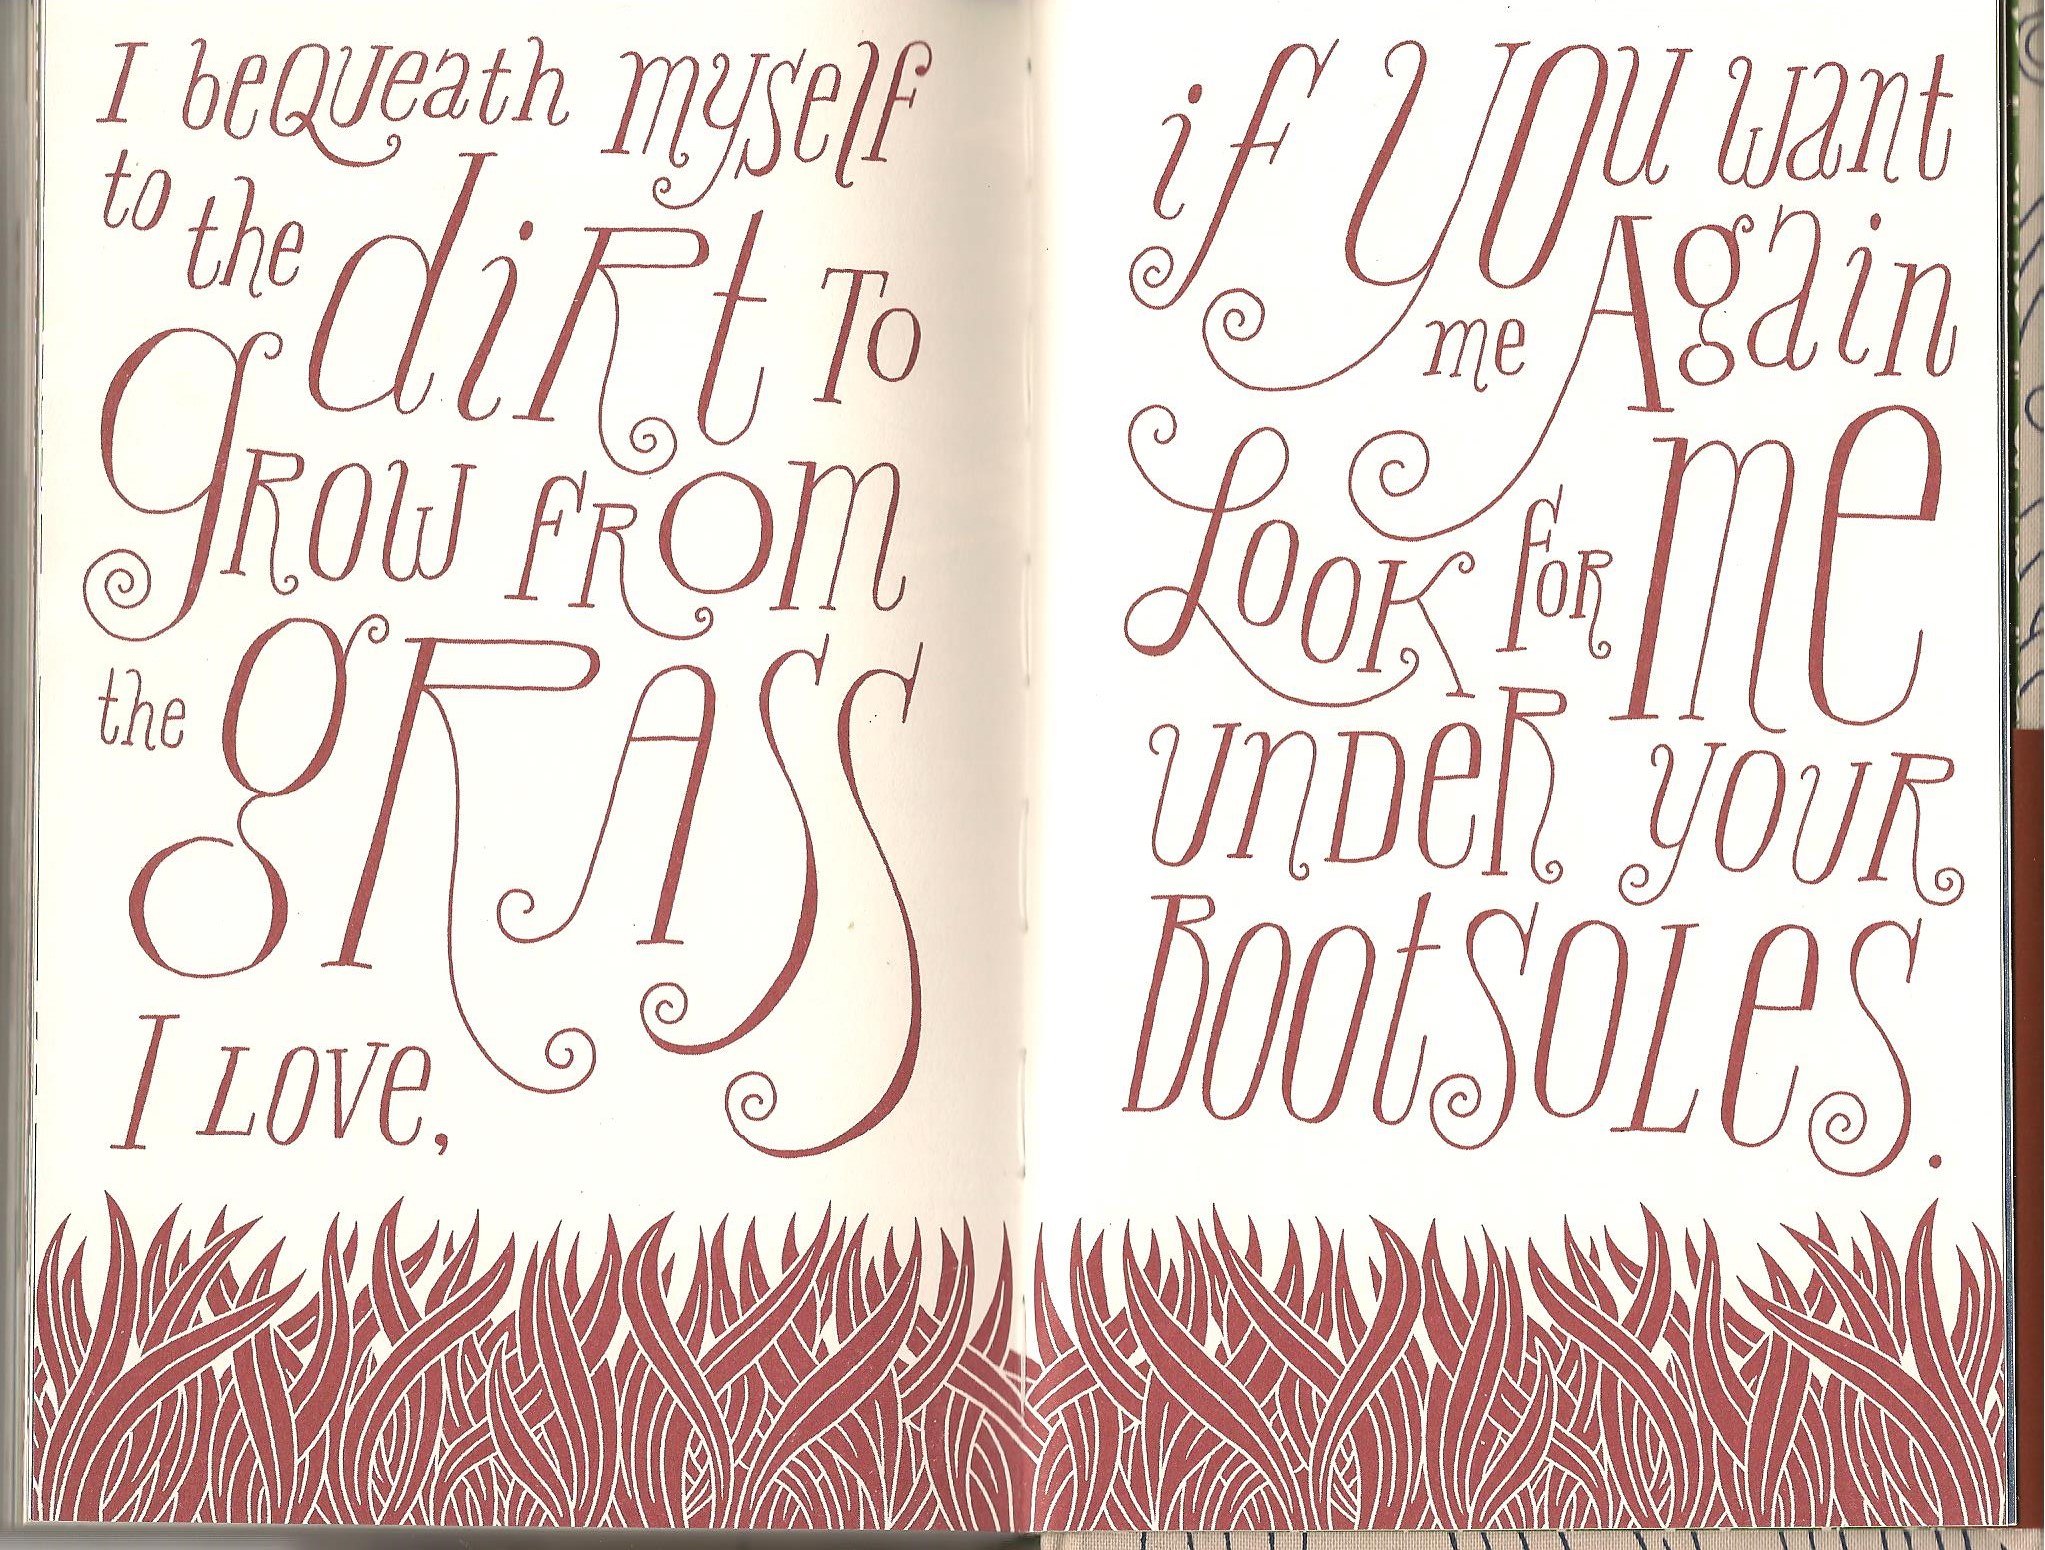 I beQUeath myself
to the diRt To
gRow fRom
the gRASS
I Love,
if YOU want
me Again
Look foR me
UnDeR yoUR
BootSoLeS.